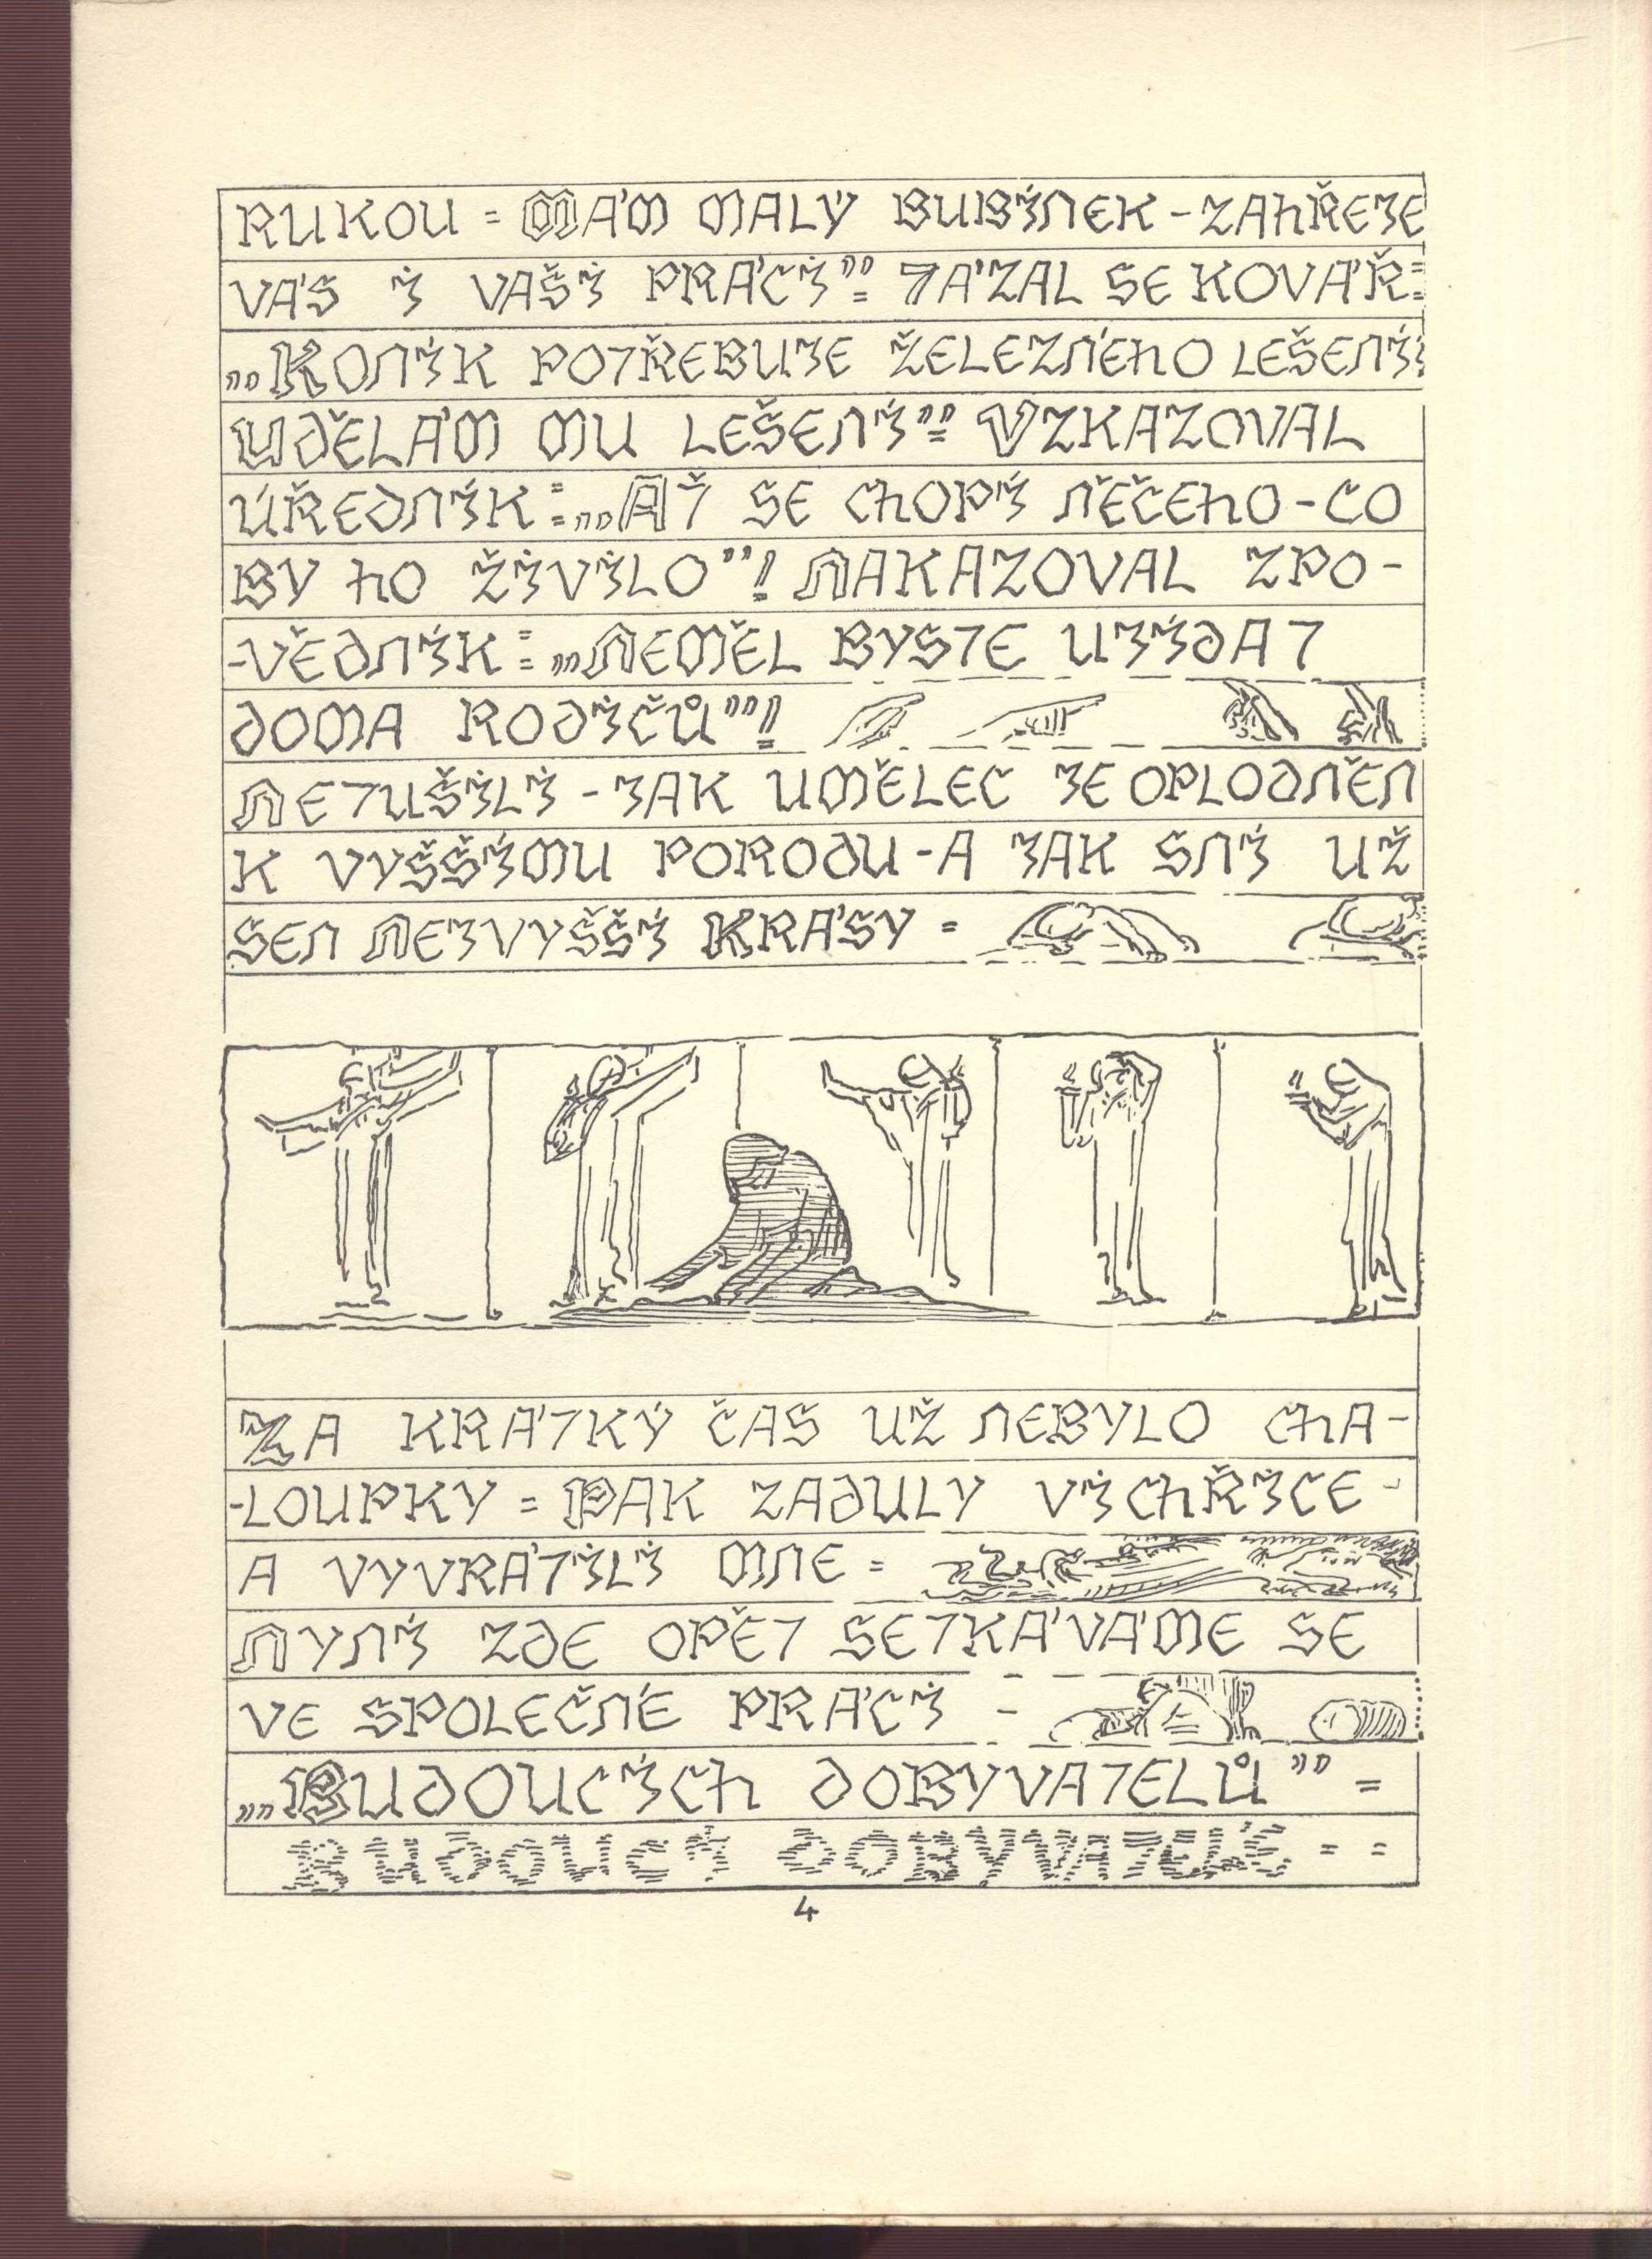 RUKOU = MÁM MALÝ BUBÍNEK - ZAHŘEJE
VÁS I VAŠI PRÁCI” = TÁZAL SE KOVÁŘ =
„KONÍK POTŘEBUJE ŽELEZNÉHO LEŠENÍ:
UDĚLÁM MU LEŠENÍ” = VZKAZOVAL
ÚŘEDNÍK = „AŤ SE CHOPÍ NĚČEHO - CO
BY HO ŽIVILO”! NAKAZOVAL ZPO-
-VĚDNÍK = „NEMĚL BYSTE UJÍDAT
DOMA RODIČŮ”!
NETUŠILI - JAK UMĚLEC JE OPLODNĚN
K VYŠŠÍMU PORODU - A JAK SNÍ UŽ
SEN NEJVYŠŠÍ KRÁSY =
ZA KRÁTKÝ ČAS UŽ NEBYLO CHA-
-LOUPKY = PAK ZADULY VICHŘICE -
A VYVRÁTILI MNE =
NYNÍ ZDE OPĚT SETKÁVÁME SE
VE SPOLEČNÉ PRÁCI -
„BUDOUCÍCH DOBYVATELŮ” =
BUDOUCÍ
4